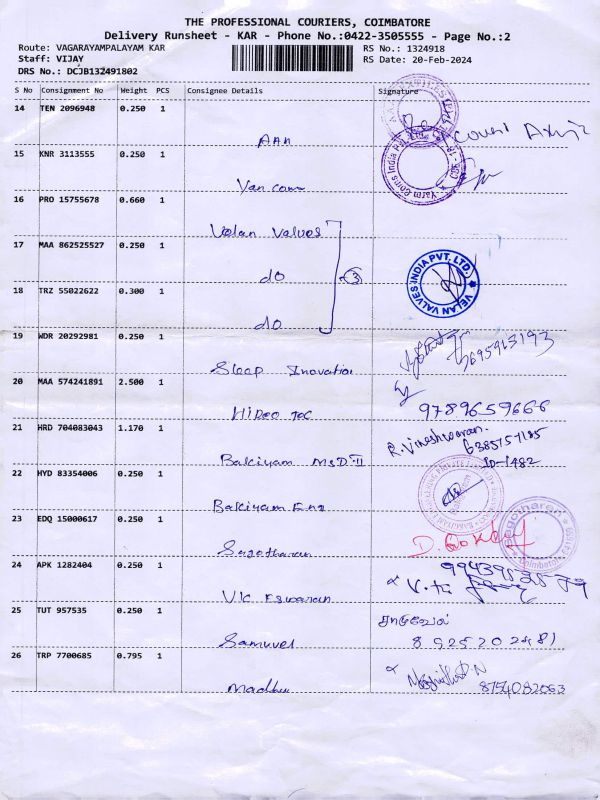 THE PROFESSIONAL COURIERS, COIMBATORE
Delivery Runsheet - KAR - Phone No.:0422-3505555 - Page No.:2
Route: VAGARAYAMPALAYAM KAR
RS No.: 1324918
Staff: VIJAY
RS Date: 20-Feb-2024
DRS No.: DCJB132491802
S No Consignment No Weight PCS Consignee Details Signature
14 TEN 2096948 0.250 1
15 KNR 3113555 0.250 1
Van Cam
16 PRO 15755678 0.660 1
Velan Valves
17 MAA 862525527 0.250 1
do
3
VELAN VALVES INDIA PVT. LTD.
18 TRZ 55022622 0.300 1
do
19 WDR 20292981 0.250 1
Sleep Inovation
20 MAA 574241891 2.500 1
9789659666
21 HRD 704083043 1.170 1
R. Vineshwaran.
Bakiyam MSD-II
ID-1482
22 HYD 83354006 0.250 1
Bakiyam Eng
23 EDQ 15000617 0.250 1
Sagotharan
Sagotharan
Coimbatore
24 APK 1282404 0.250 1
V.K. Eswaran
25 TUT 957535 0.250 1
சாமுவேல்
Samuvel
8925202481
26 TRP 7700685 0.795 1
Madhu
8754082063